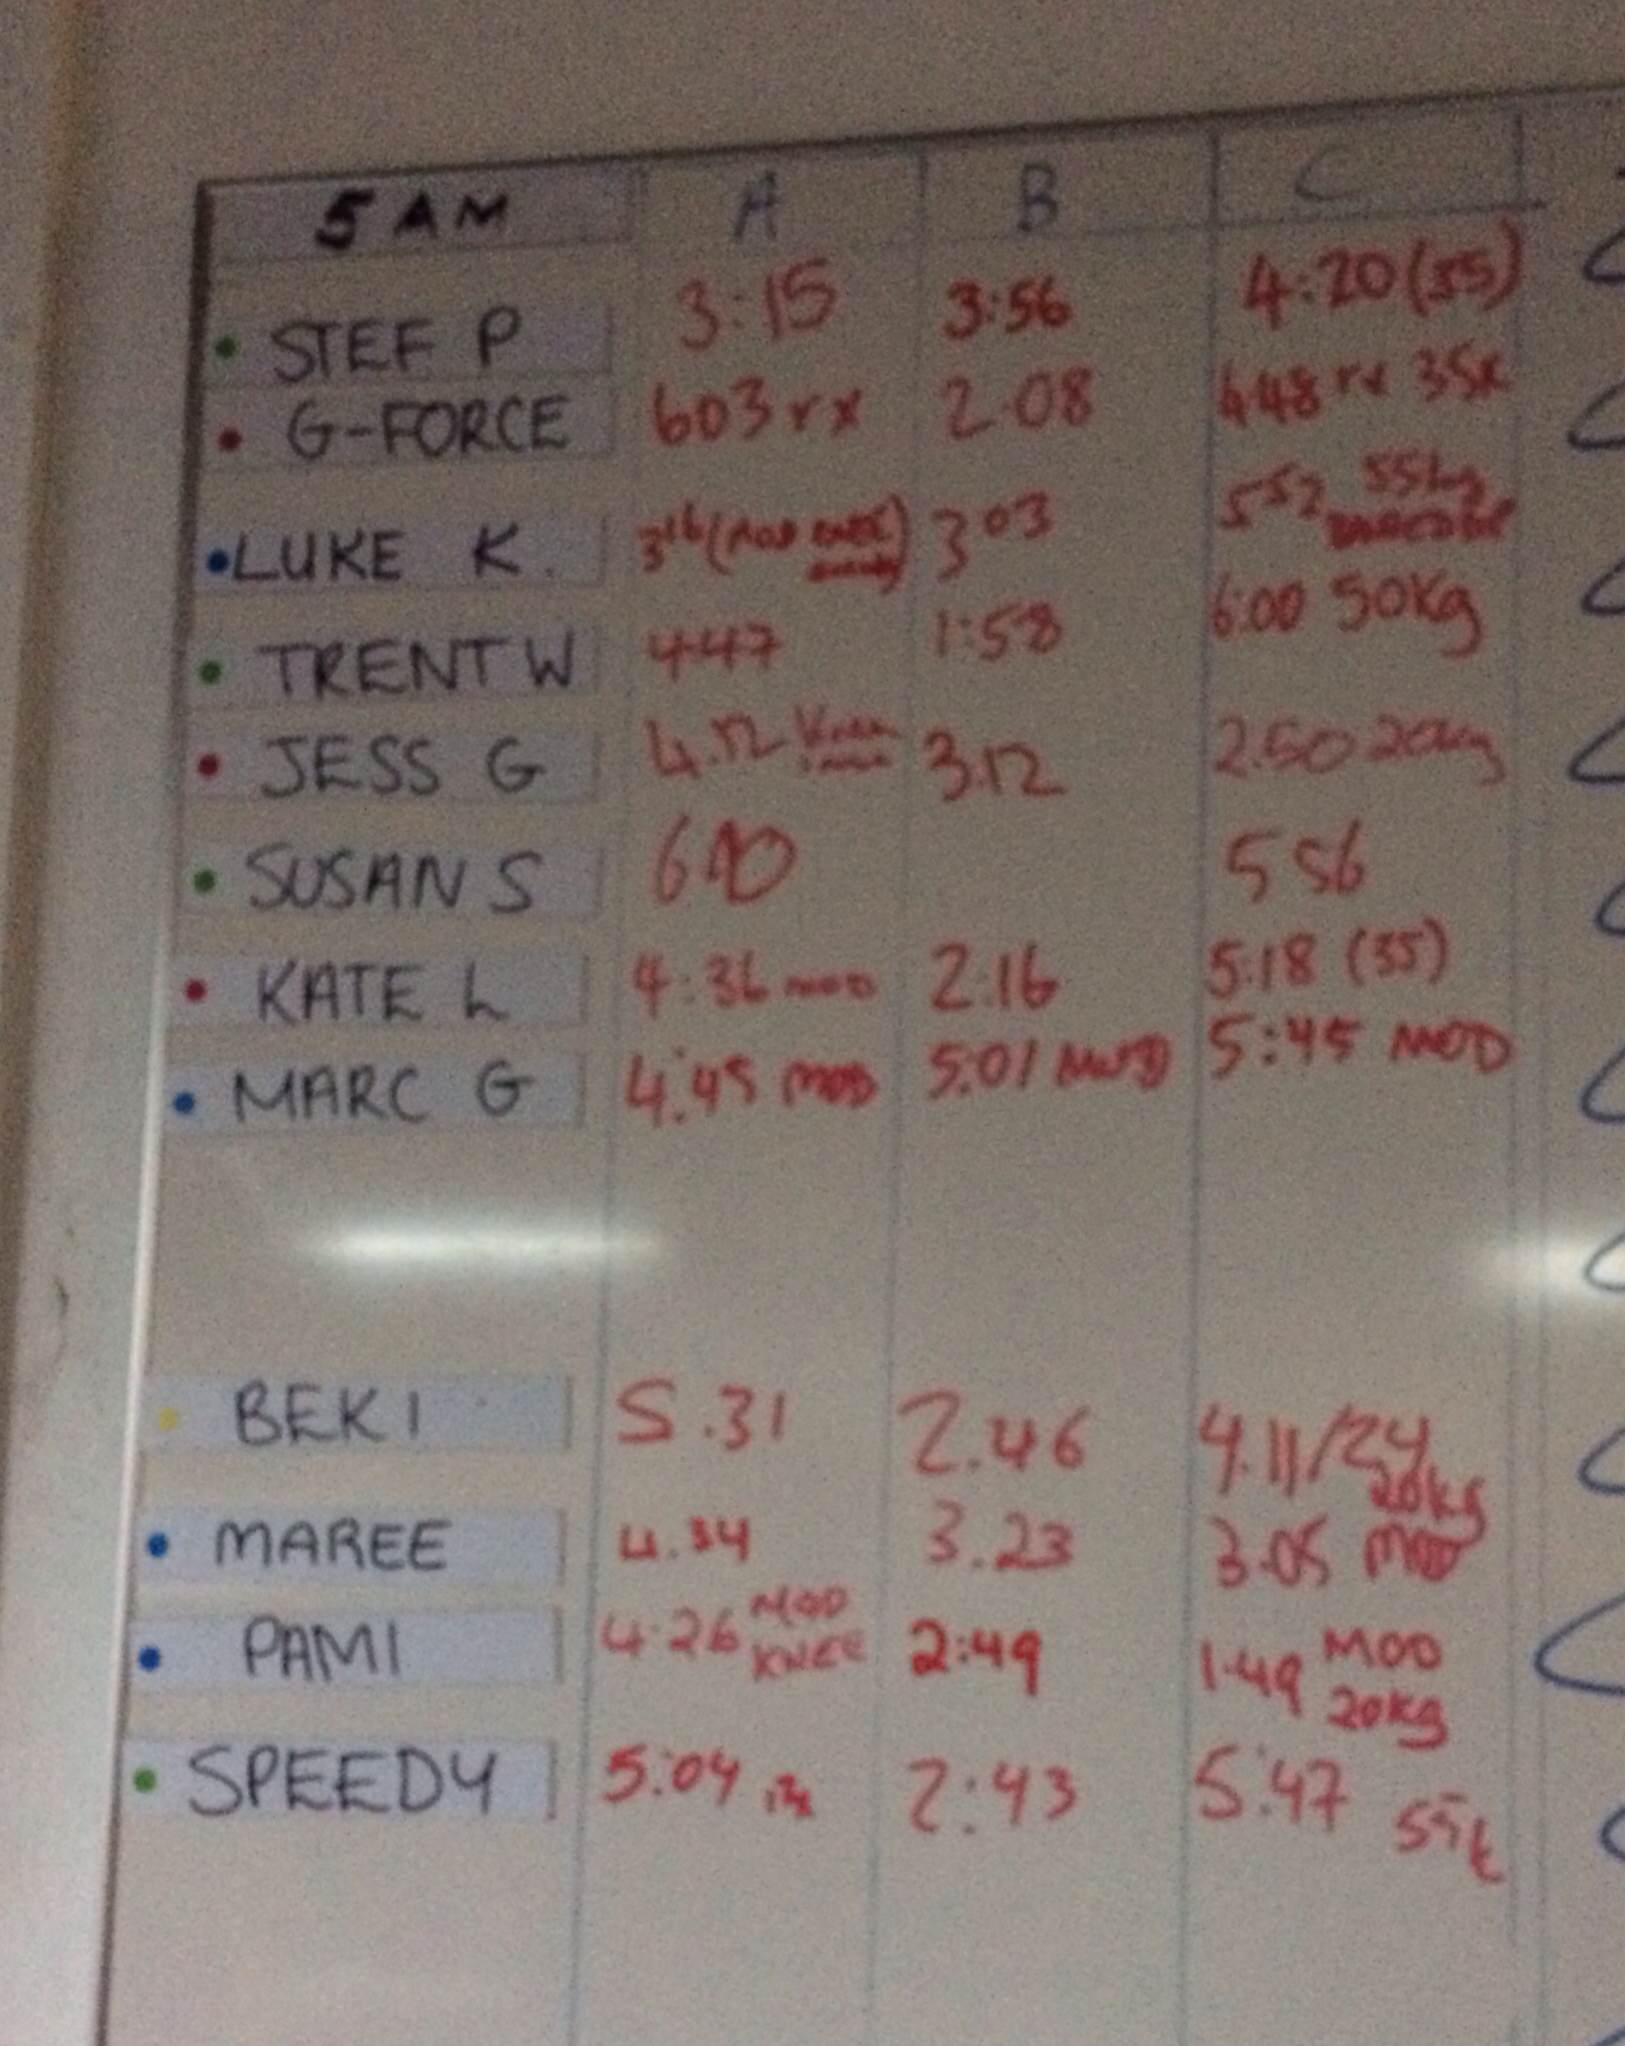 5 AM A B C
STEF P 3:15 3:56 4:20 (35)
G-FORCE 603 rx 2.08 4:48 rx 35k
LUKE K. 3 16 (MOD 3 03 5 52 55kg
TRENT W 447 1:58 6:00 50kg
JESS G 4.12 3.12 2.50 20kg
SUSAN S 6.10 5 56
KATE L 4:36 MOD 2.16 5:18 (35)
MARC G 4:45 MOD 5:01 MOD 5:45 MOD
BEK I 5.31 2.46 4.11/24
20kg
MAREE 4.34 3.23 3.05 MOD
PAM I 4.26 MOD KNEE 2:49 1.49 MOD 20kg
SPEEDY 5:04 2:43 5:47 55k